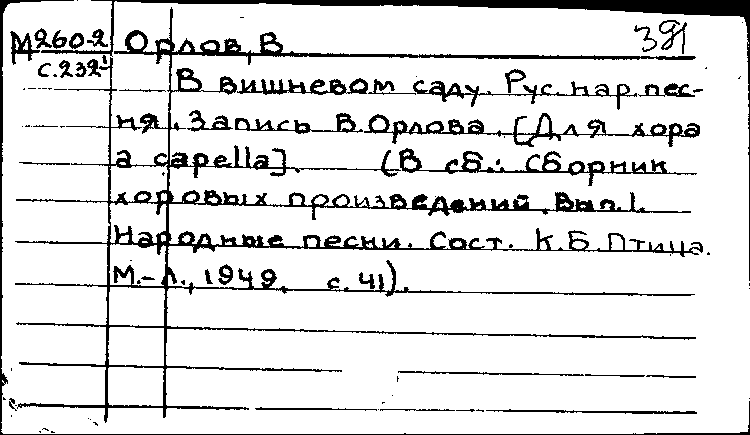 М260-2 Орлов, В. 391
с.232¹
В вишневом саду. Рус. нар. пес-
ня. Запись В. Орлова. [Для хора
a capella]. (В сб.: Сборник
хоровых произведений. Вып. 1.
Народные песни. Сост. К.Б. Птица.
М.-Л., 1949, с. 41).